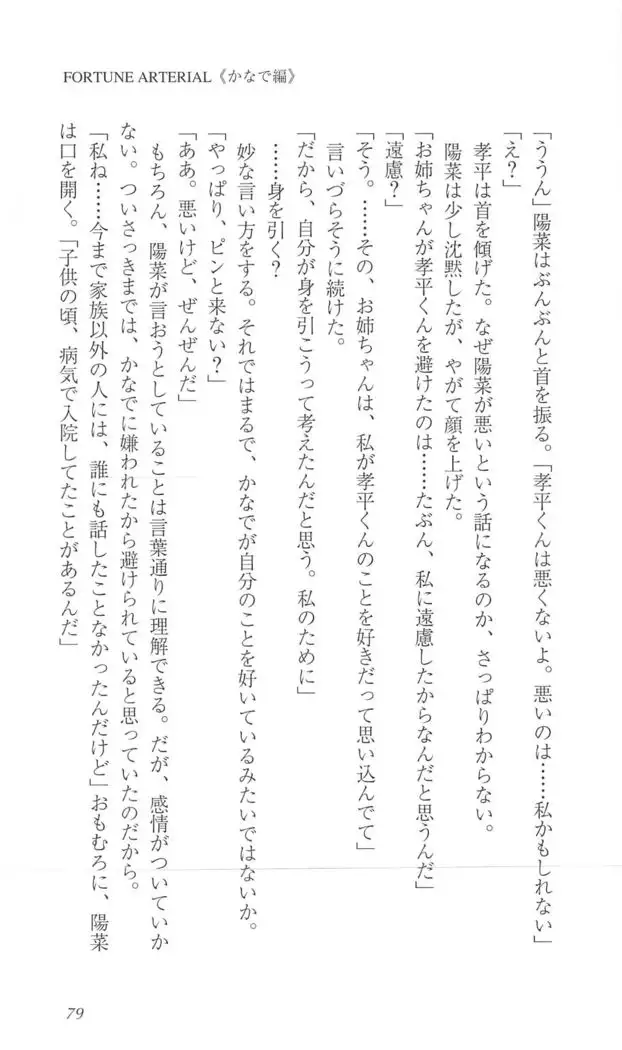 FORTUNE ARTERIAL《かなで編》
「ううん」陽菜はぶんぶんと首を振る。「孝平くんは悪くないよ。悪いのは……私かもしれない」
「え？」
孝平は首を傾げた。なぜ陽菜が悪いという話になるのか、さっぱりわからない。
陽菜は少し沈黙したが、やがて顔を上げた。
「お姉ちゃんが孝平くんを避けたのは……たぶん、私に遠慮したからなんだと思うんだ」
「遠慮？」
「そう。……その、お姉ちゃんは、私が孝平くんのことを好きだって思い込んでて」
言いづらそうに続けた。
「だから、自分が身を引こうって考えたんだと思う。私のために」
……身を引く？
妙な言い方をする。それではまるで、かなでが自分のことを好いているみたいではないか。
「やっぱり、ピンと来ない？」
「ああ。悪いけど、ぜんぜんだ」
もちろん、陽菜が言おうとしていることは言葉通りに理解できる。だが、感情がついていか
ない。ついさっきまでは、かなでに嫌われたから避けられていると思っていたのだから。
「私ね……今まで家族以外の人には、誰にも話したことなかったんだけど」おもむろに、陽菜
は口を開く。「子供の頃、病気で入院してたことがあるんだ」
79